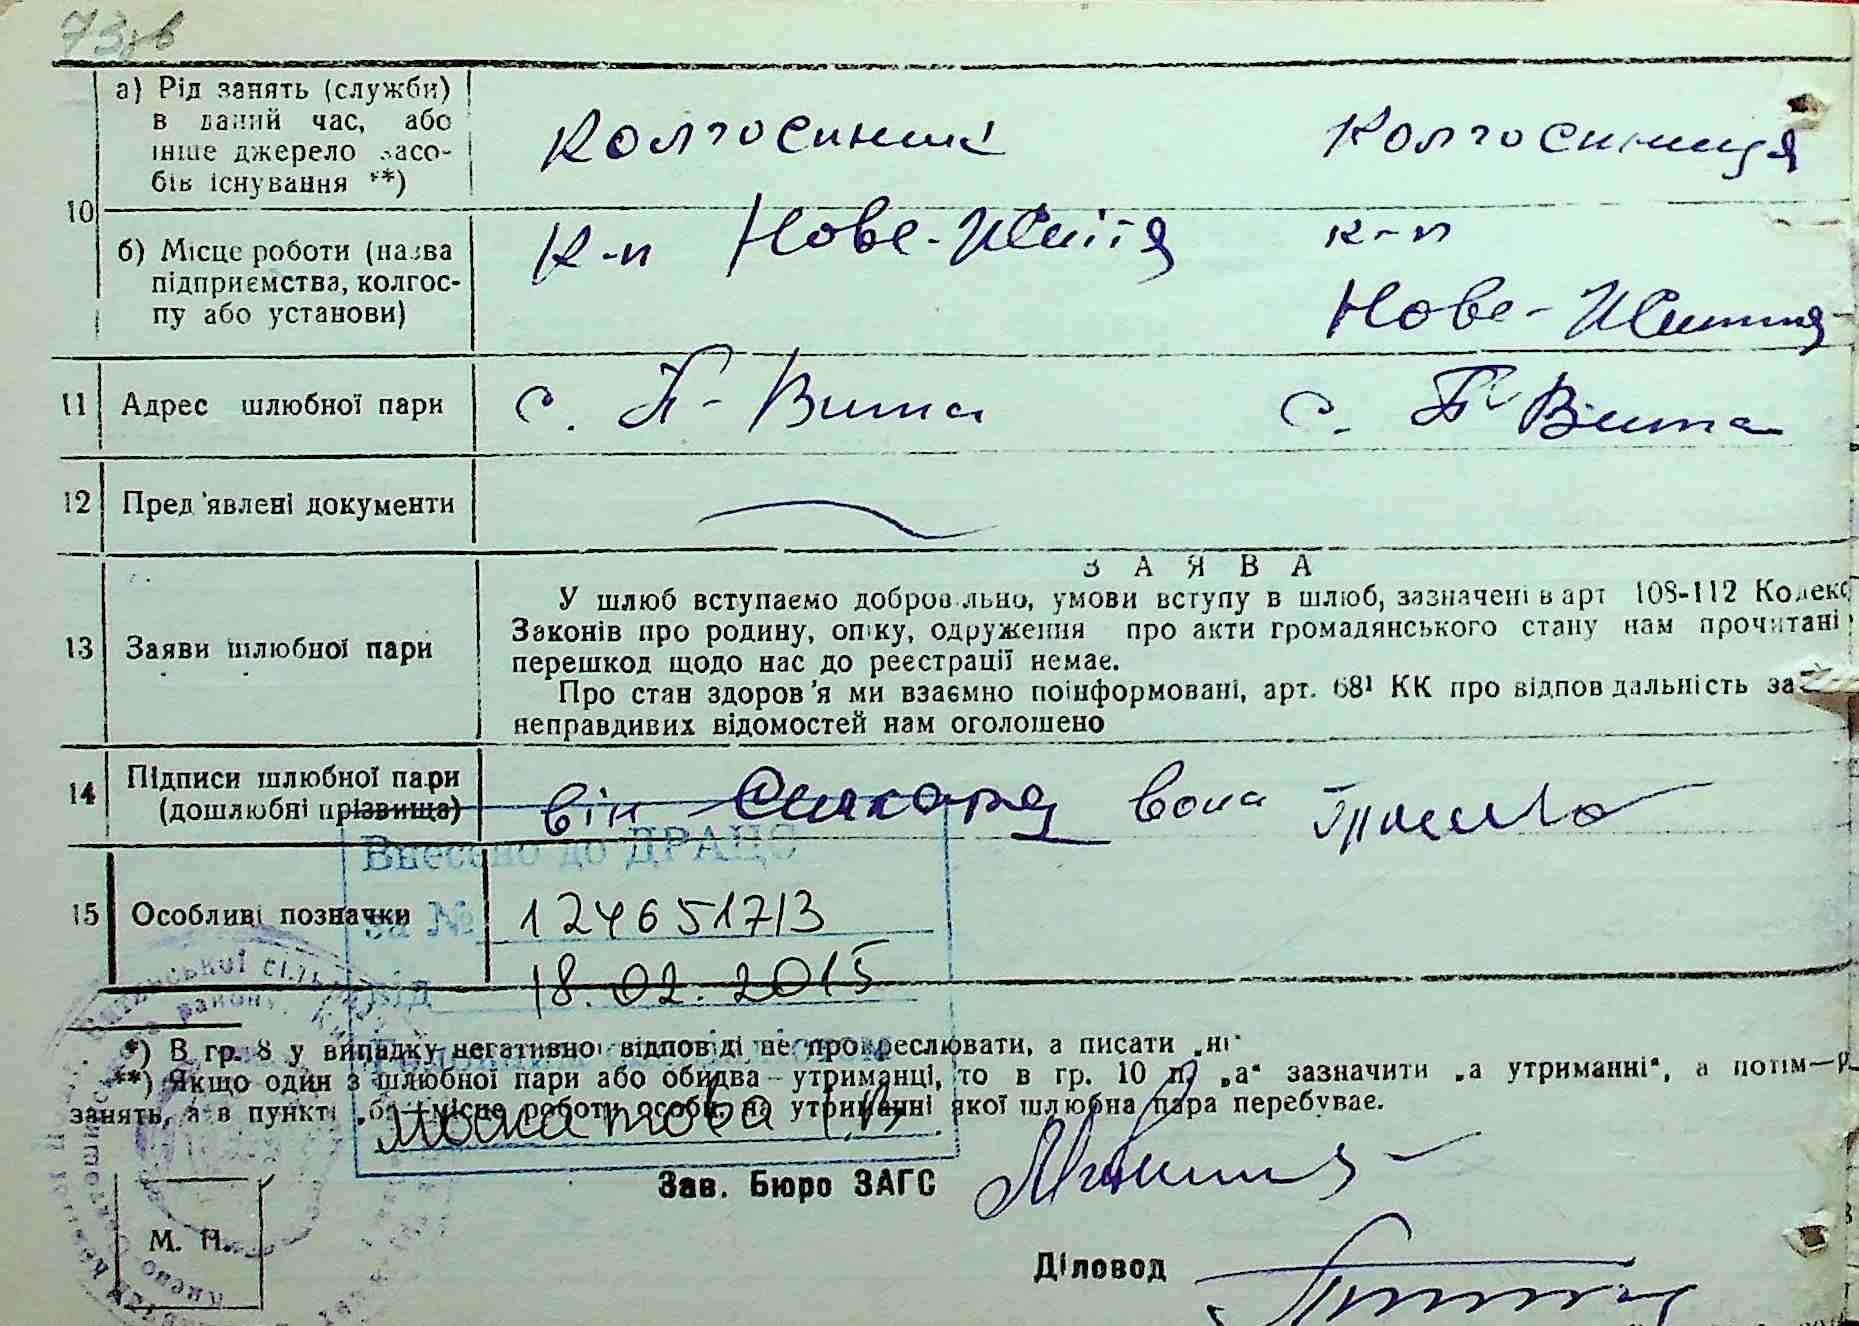 73зв
а) Рід занять (служби)
в даний час, або
інше джерело засо-
бів існування **)
Колгоспник
Колгоспниця
10
б) Місце роботи (назва
підприємства, колгос-
пу або установи)
К-п Нове-Життя
к-п
Нове-Життя
11 Адрес шлюбної пари
с. П-Вита
с. П-Віта
12 Пред'явлені документи
ЗАЯВА
13 Заяви шлюбної пари
У шлюб вступаємо добровільно, умови вступу в шлюб, зазначені в арт 108-112 Кодекс
Законів про родину, опіку, одруження про акти громадянського стану нам прочитані
перешкод щодо нас до реєстрації немає.
Про стан здоров'я ми взаємно поінформовані, арт. 68¹ КК про відповідальність за
неправдивих відомостей нам оголошено
14 Підписи шлюбної пари
(дошлюбні прізвища)
він вона
Внесено до ДРАЦС
15 Особливі позначки
за № 124651713
від 18.02.2015
*) В гр. 8 у випадку негативної відповіді не прокреслювати, а писати „ні
**) Якщо один з шлюбної пари або обидва—утриманці, то в гр. 10 п. „а“ зазначити „а утриманні“, а потім—р
занять, а в пункті „б“ місце роботи особи, на утриманні якої шлюбна пара перебуває.
Зав. Бюро ЗАГС
М. П.
Діловод